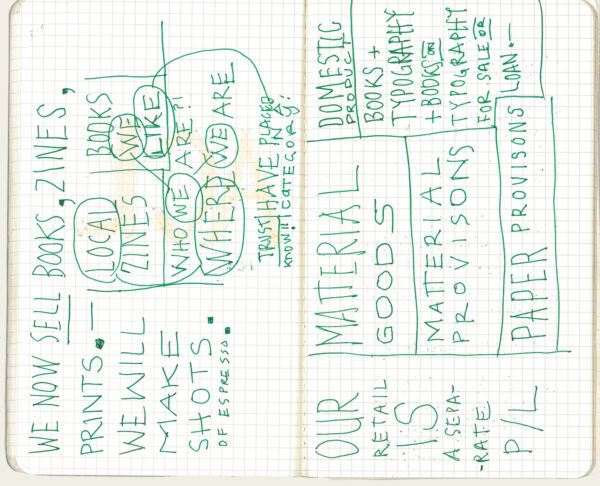 WE NOW SELL BOOKS, ZINES,
PRINTS.—
WE WILL
MAKE
SHOTS.
OF ESPRESSO.
LOCAL BOOKS
ZINES WE
LIKE
WHO WE ARE?!
WHERE WE ARE
TRUST HAVE PLACED
IN A
CATEGORY!
OUR
RETAIL
IS
A SEPA-
-RATE
P/L
MATTERIAL
GOODS
MATTERIAL
PROVISONS
PAPER PROVISONS
DOMESTIC
PRODUCT
BOOKS +
TYPOGRAPHY
+ BOOKS ON
TYPOGRAPHY
FOR SALE OR
LOAN.—